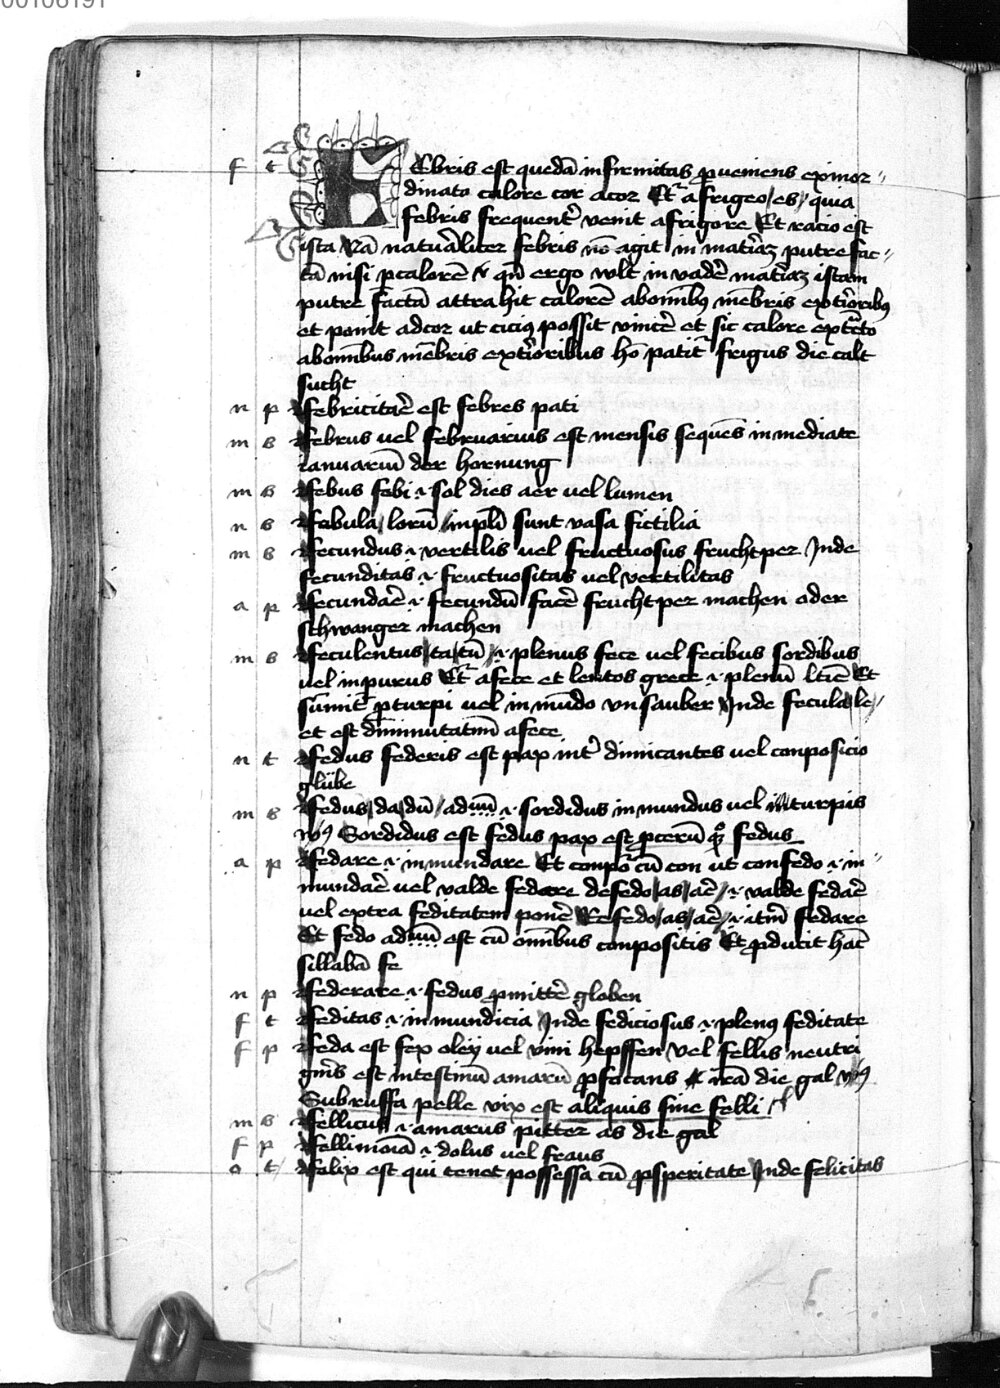 00106191
f t Febris est quedā infirmitas ꝓueniens ex inor„
dinato calore cor ac cor Et̄ a frigeo/es/ quia
febris frequent̄ venit a frigore Et racio est
ista Nā naturālit̄er febris nō agit in mat̄iaꝫ putrefac„
tā nisi ꝑ calorē qn̄ ergo vlt̄ invadē mat̄iaꝫ istam
putrefactā attrahit calorē ab omībꝫ mēbris ext̄ioribꝫ
et ponit ad cor ut ciciꝰ possit vincē et sic calore ext̄cto
ab omībus mēbris ext̄ioribus hō patit̄ frigus die calt
sucht
n p febricitāe est febres pati
m s februs uel februarius est mensis sequēs inmediate
ianuariū der hornung
m s febus febi .i. sol dies aer uel lumen
n s fabula/lorū/in plī sunt vasa fictilia
m s fecundus .i. vertilis uel fructuosus fruchtper Inde
fecunditas .i. fructuositas uel vertilitas
a p fecundāe .i. fecundū facē fruchtper machen oder
schwanger machen
m s feculentus/ta/tū/ .i. plenus fece uel fecibus sordibus
uel inpurus Et̄ a fece et lentos grece .i. plenū ltīe Et
sūmit̄ ꝓ turpi uel inmūdo vnsauber Inde fecula/le/
et est diminutatiuū a fece
n t fedus federis est pax int̄ dimicantes uel conposicio
glübe
m s fedus/da/dū/ .i. sordidus inmundus uel turpis
vꝰ Sordidus est fedus pax est ꝓcerū qꝫ fedus
a p fedare .i. inmundare Et conpoī cū con ut confedo .i. in„
mundāe uel valde fedare defedo/as/āe/ .i. valde fedāe
uel extra feditatem ponē Refedo/as/āe/ .i. it̄m fedare
Et fedo est cū omībus conpositis Et ꝓducit hāc
sillabā fe
n p federare .i. fedus ꝓmittē globen
f t feditas .i. inmundicia Inde fediciosus .i. plenꝰ feditate
f p feda est fex oleij uel vini hepffen Vel fellis neutri
gn̄is est intestinū amarū ꝓfocans irā die gal vꝰ
Subrussa pelle vix est aliquis sine felli
m s fellicus .i. amarus pitter as die gal
f p felliniōia .i. dolus uel fraus
o t felix est qui tenet possessa cū ꝓsperitate Inde felicitas